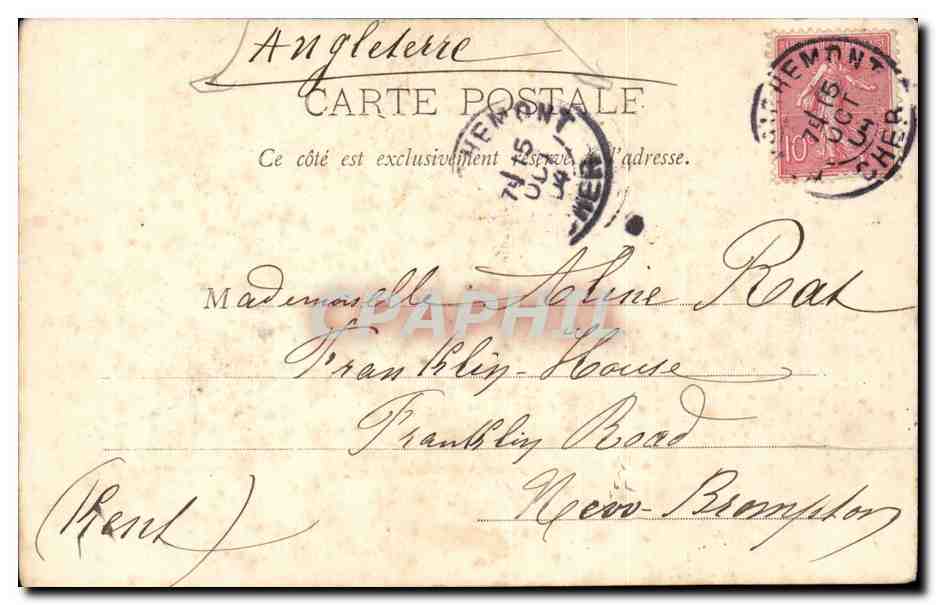 Angleterre
CARTE POSTALE
Ce côté est exclusivement réservé à l'adresse.
HEMONT
15
OCT
04
CHER
HEMONT
15
OCT
04
CHER
10
Mademoiselle Aline Rat
CPAPHIL
Franklin-House
Franklin Road
New-Brompton
(Kent)